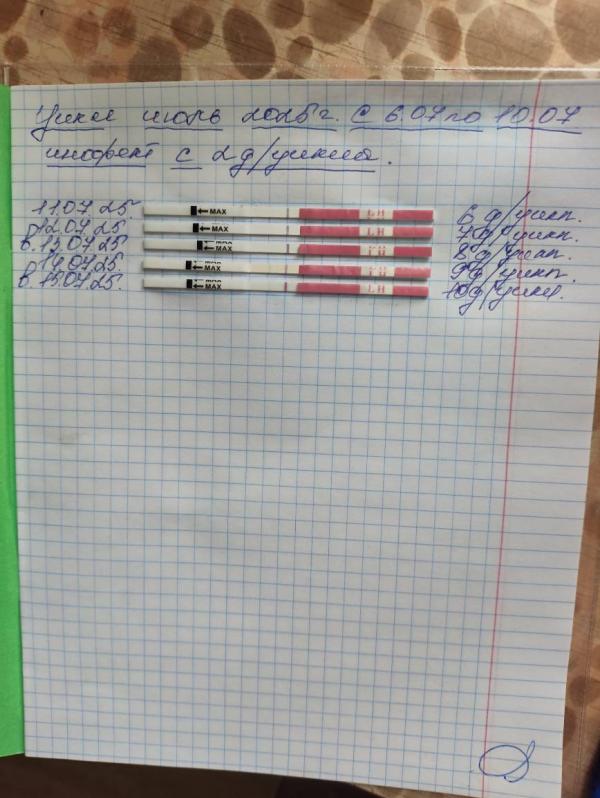 Цикл июль 2025г. с 6.07 по 10.07
с 2д/цикла.
11.07.25. MAX LH 6 д/цикл.
12.07.25 MAX LH 7д/цикл.
в. 13.07.25 MAX LH 8 д/цикл.
14.07.25 MAX LH 9 д/цикл.
в. 15.07.25. MAX LH 10д/цикл.